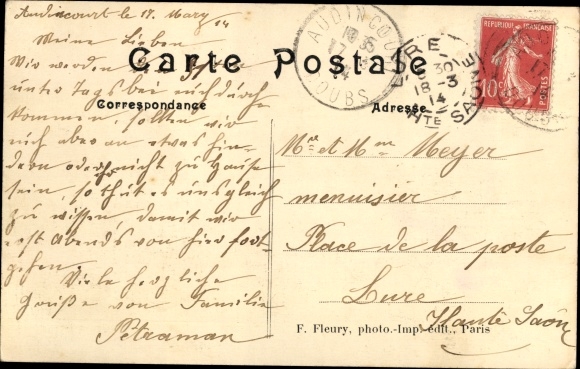 Audincourt le 17. Marz 14
Meine Lieben
Wir werden
unter tags bei euch durch
kommen, sollten wir
euch aber an etwas hin-
dern oder ihr nicht zu Hause
sein, so thut es uns gleich
zu wissen, damit wir
erst Abends von hier fort-
gehen.
Viele herzliche
Grüße von Familie
Petraman
Carte Postale
Correspondance
Adresse
AUDINCOURT
17
14
DOUBS
LURE
30
18-3
14
HTE SAONE
RÉPUBLIQUE FRANÇAISE
10c
Mr et Mme Meyer
menuisier
Place de la poste
Lure
Haute Saône
F. Fleury, photo.-Imp.-édit., Paris